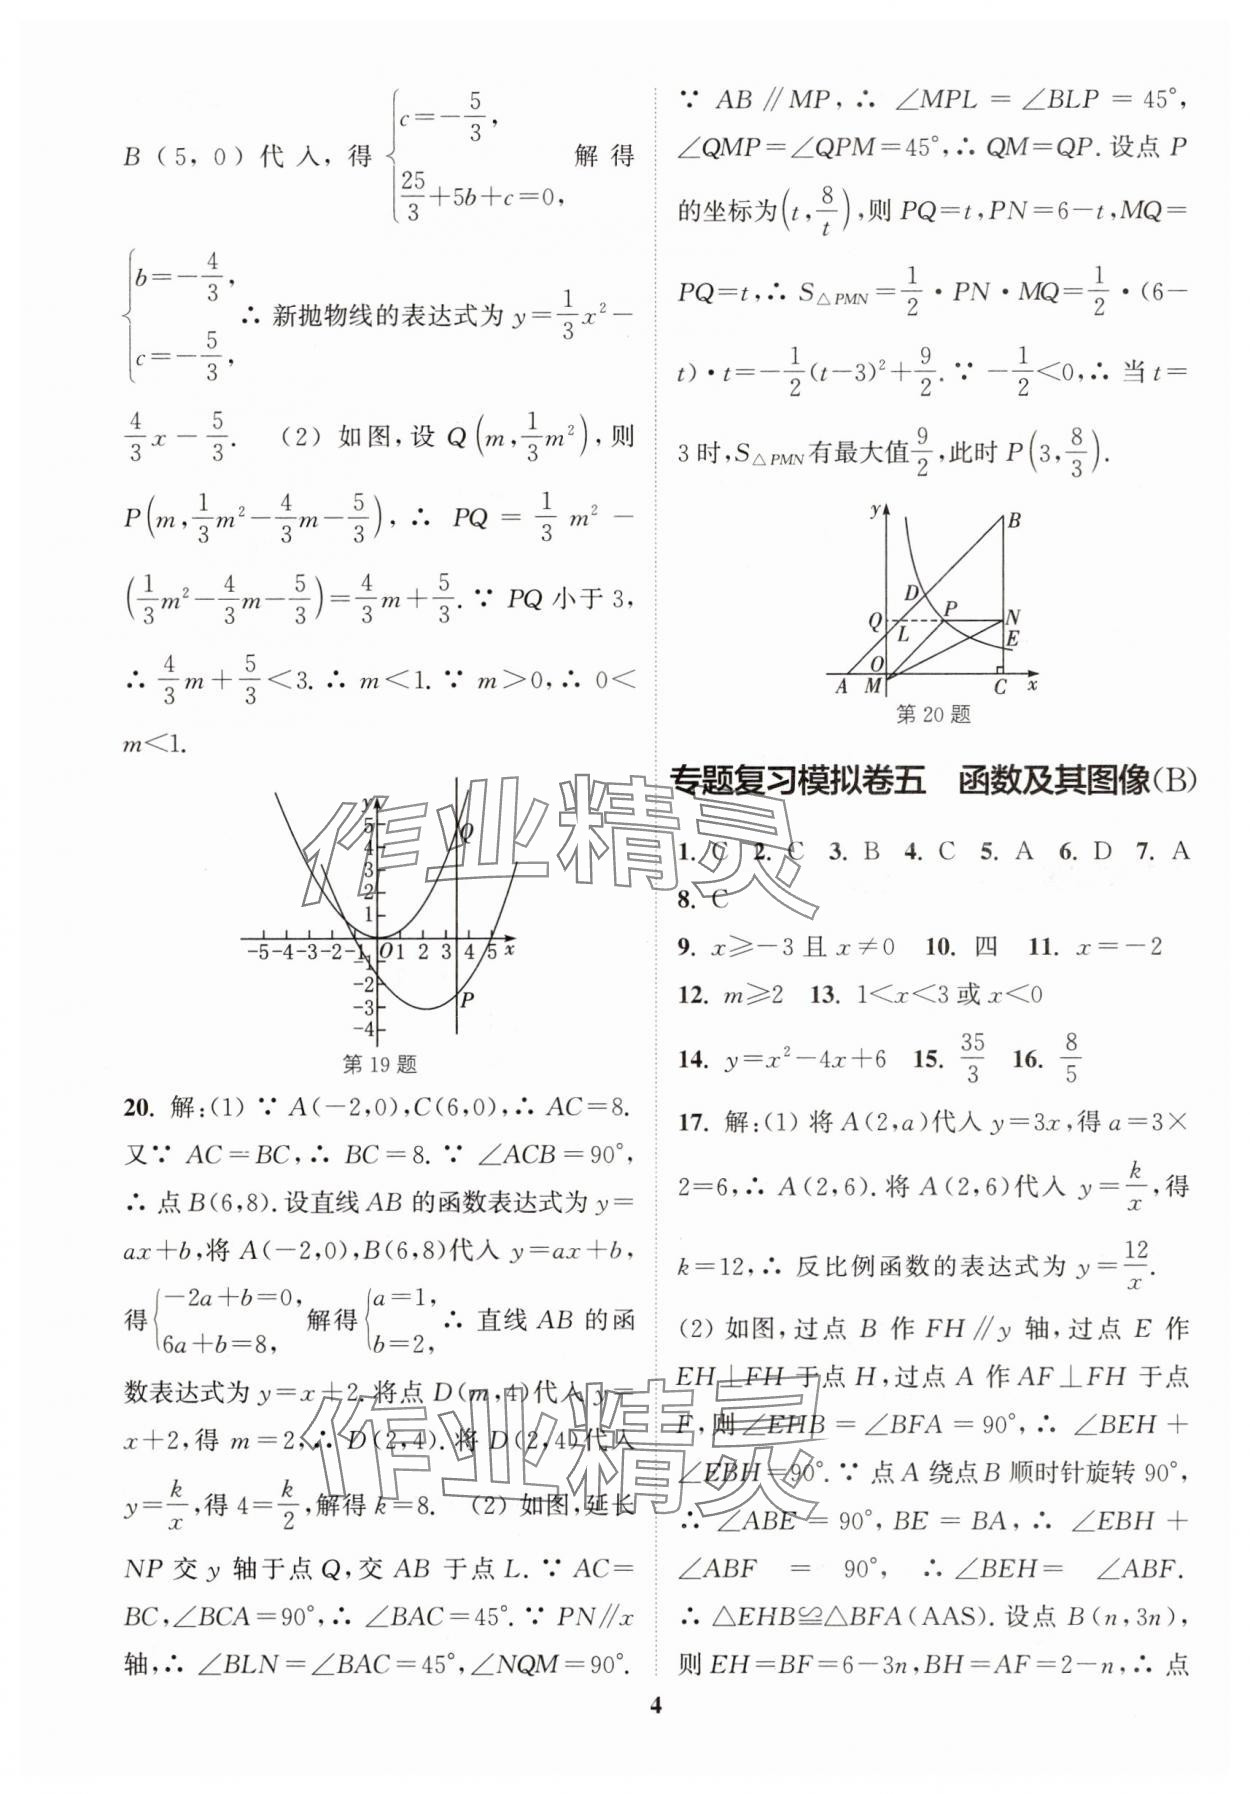 B(5,0)代入,得{c=-5/3, 25/3+5b+c=0, 解得
{b=-4/3, c=-5/3, ∴新抛物线的表达式为 y=1/3x²-
4/3x-5/3. (2)如图,设 Q(m,1/3m²),则
P(m,1/3m²-4/3m-5/3),∴ PQ=1/3m²-
(1/3m²-4/3m-5/3)=4/3m+5/3.∵ PQ小于3,
∴ 4/3m+5/3<3.∴ m<1.∵ m>0,∴ 0<
m<1.
y
5
4
3
2
1
-5-4-3-2-1 O 1 2 3 4 5 x
-1
-2
-3
-4
Q
P
第19题
20. 解:(1)∵ A(-2,0),C(6,0),∴ AC=8.
又∵ AC=BC,∴ BC=8.∵ ∠ACB=90°,
∴ 点B(6,8).设直线AB的函数表达式为y=
ax+b,将A(-2,0),B(6,8)代入y=ax+b,
得{-2a+b=0, 6a+b=8, 解得{a=1, b=2, ∴ 直线AB的函
数表达式为y=x+2.将点D(m,4)代入y=
x+2,得m=2,∴ D(2,4).将D(2,4)代入
y=k/x,得4=k/2,解得k=8. (2)如图,延长
NP交y轴于点Q,交AB于点L.∵ AC=
BC,∠BCA=90°,∴ ∠BAC=45°.∵ PN∥x
轴,∴ ∠BLN=∠BAC=45°,∠NQM=90°.
∵ AB∥MP,∴ ∠MPL=∠BLP=45°,
∠QMP=∠QPM=45°,∴ QM=QP.设点P
的坐标为(t,8/t),则PQ=t,PN=6-t,MQ=
PQ=t,∴ S△PMN=1/2·PN·MQ=1/2·(6-
t)·t=-1/2(t-3)²+9/2.∵ -1/2<0,∴ 当t=
3时,S△PMN有最大值9/2,此时P(3,8/3).
y
B
D
Q
L
P
N
E
O
A
M
C
x
第20题
专题复习模拟卷五 函数及其图像(B)
1. C 2. C 3. B 4. C 5. A 6. D 7. A
8. C
9. x≥-3且x≠0 10. 四 11. x=-2
12. m≥2 13. 1<x<3或x<0
14. y=x²-4x+6 15. 35/3 16. 8/5
17. 解:(1)将A(2,a)代入y=3x,得a=3×
2=6,∴ A(2,6).将A(2,6)代入y=k/x,得
k=12,∴ 反比例函数的表达式为y=12/x.
(2)如图,过点B作FH∥y轴,过点E作
EH⊥FH于点H,过点A作AF⊥FH于点
F,则∠EHB=∠BFA=90°,∴ ∠BEH+
∠EBH=90°.∵ 点A绕点B顺时针旋转90°,
∴ ∠ABE=90°,BE=BA,∴ ∠EBH+
∠ABF=90°,∴ ∠BEH=∠ABF.
∴ △EHB≌△BFA(AAS).设点B(n,3n),
则EH=BF=6-3n,BH=AF=2-n,∴ 点
4
作业精灵
作业精灵